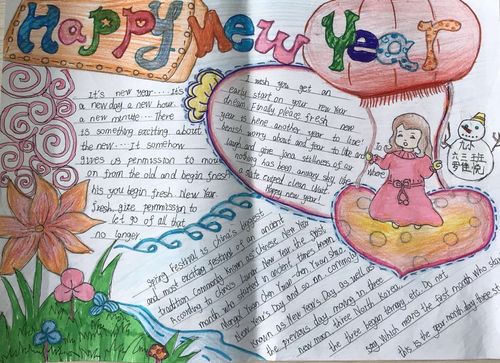 Happy Mew Year
It's new year.... It's
a new day a new hour
a new minute.... There
is something exciting about
the new.... It somehow
gives us permission to move
on from the old and begin fresh
his you begin fresh New Year
fresh give permission to
let go of all that
no longer
I wish you get an
early start on your new year
dream. Finally please fresh new
year is here another year to live!
banish worry about and fear to live and
laugh and give
nothing has been
a safe
Happy new year!
where
九小
六三班
Spring Festival is China's biggest
and most exciting festival of an ancient
tradition Commonly known as Chinese New Year
According to China's lunar New Year the first
month, who started in ancient times known
Yuan Chen Yuan Shuo
New Year's Day and so on, commonly
known as New Year's Day as well as
the previous day, moved on three
new made three North Korea
the three began Do not
say Which means the first month Who
this is the year month day three